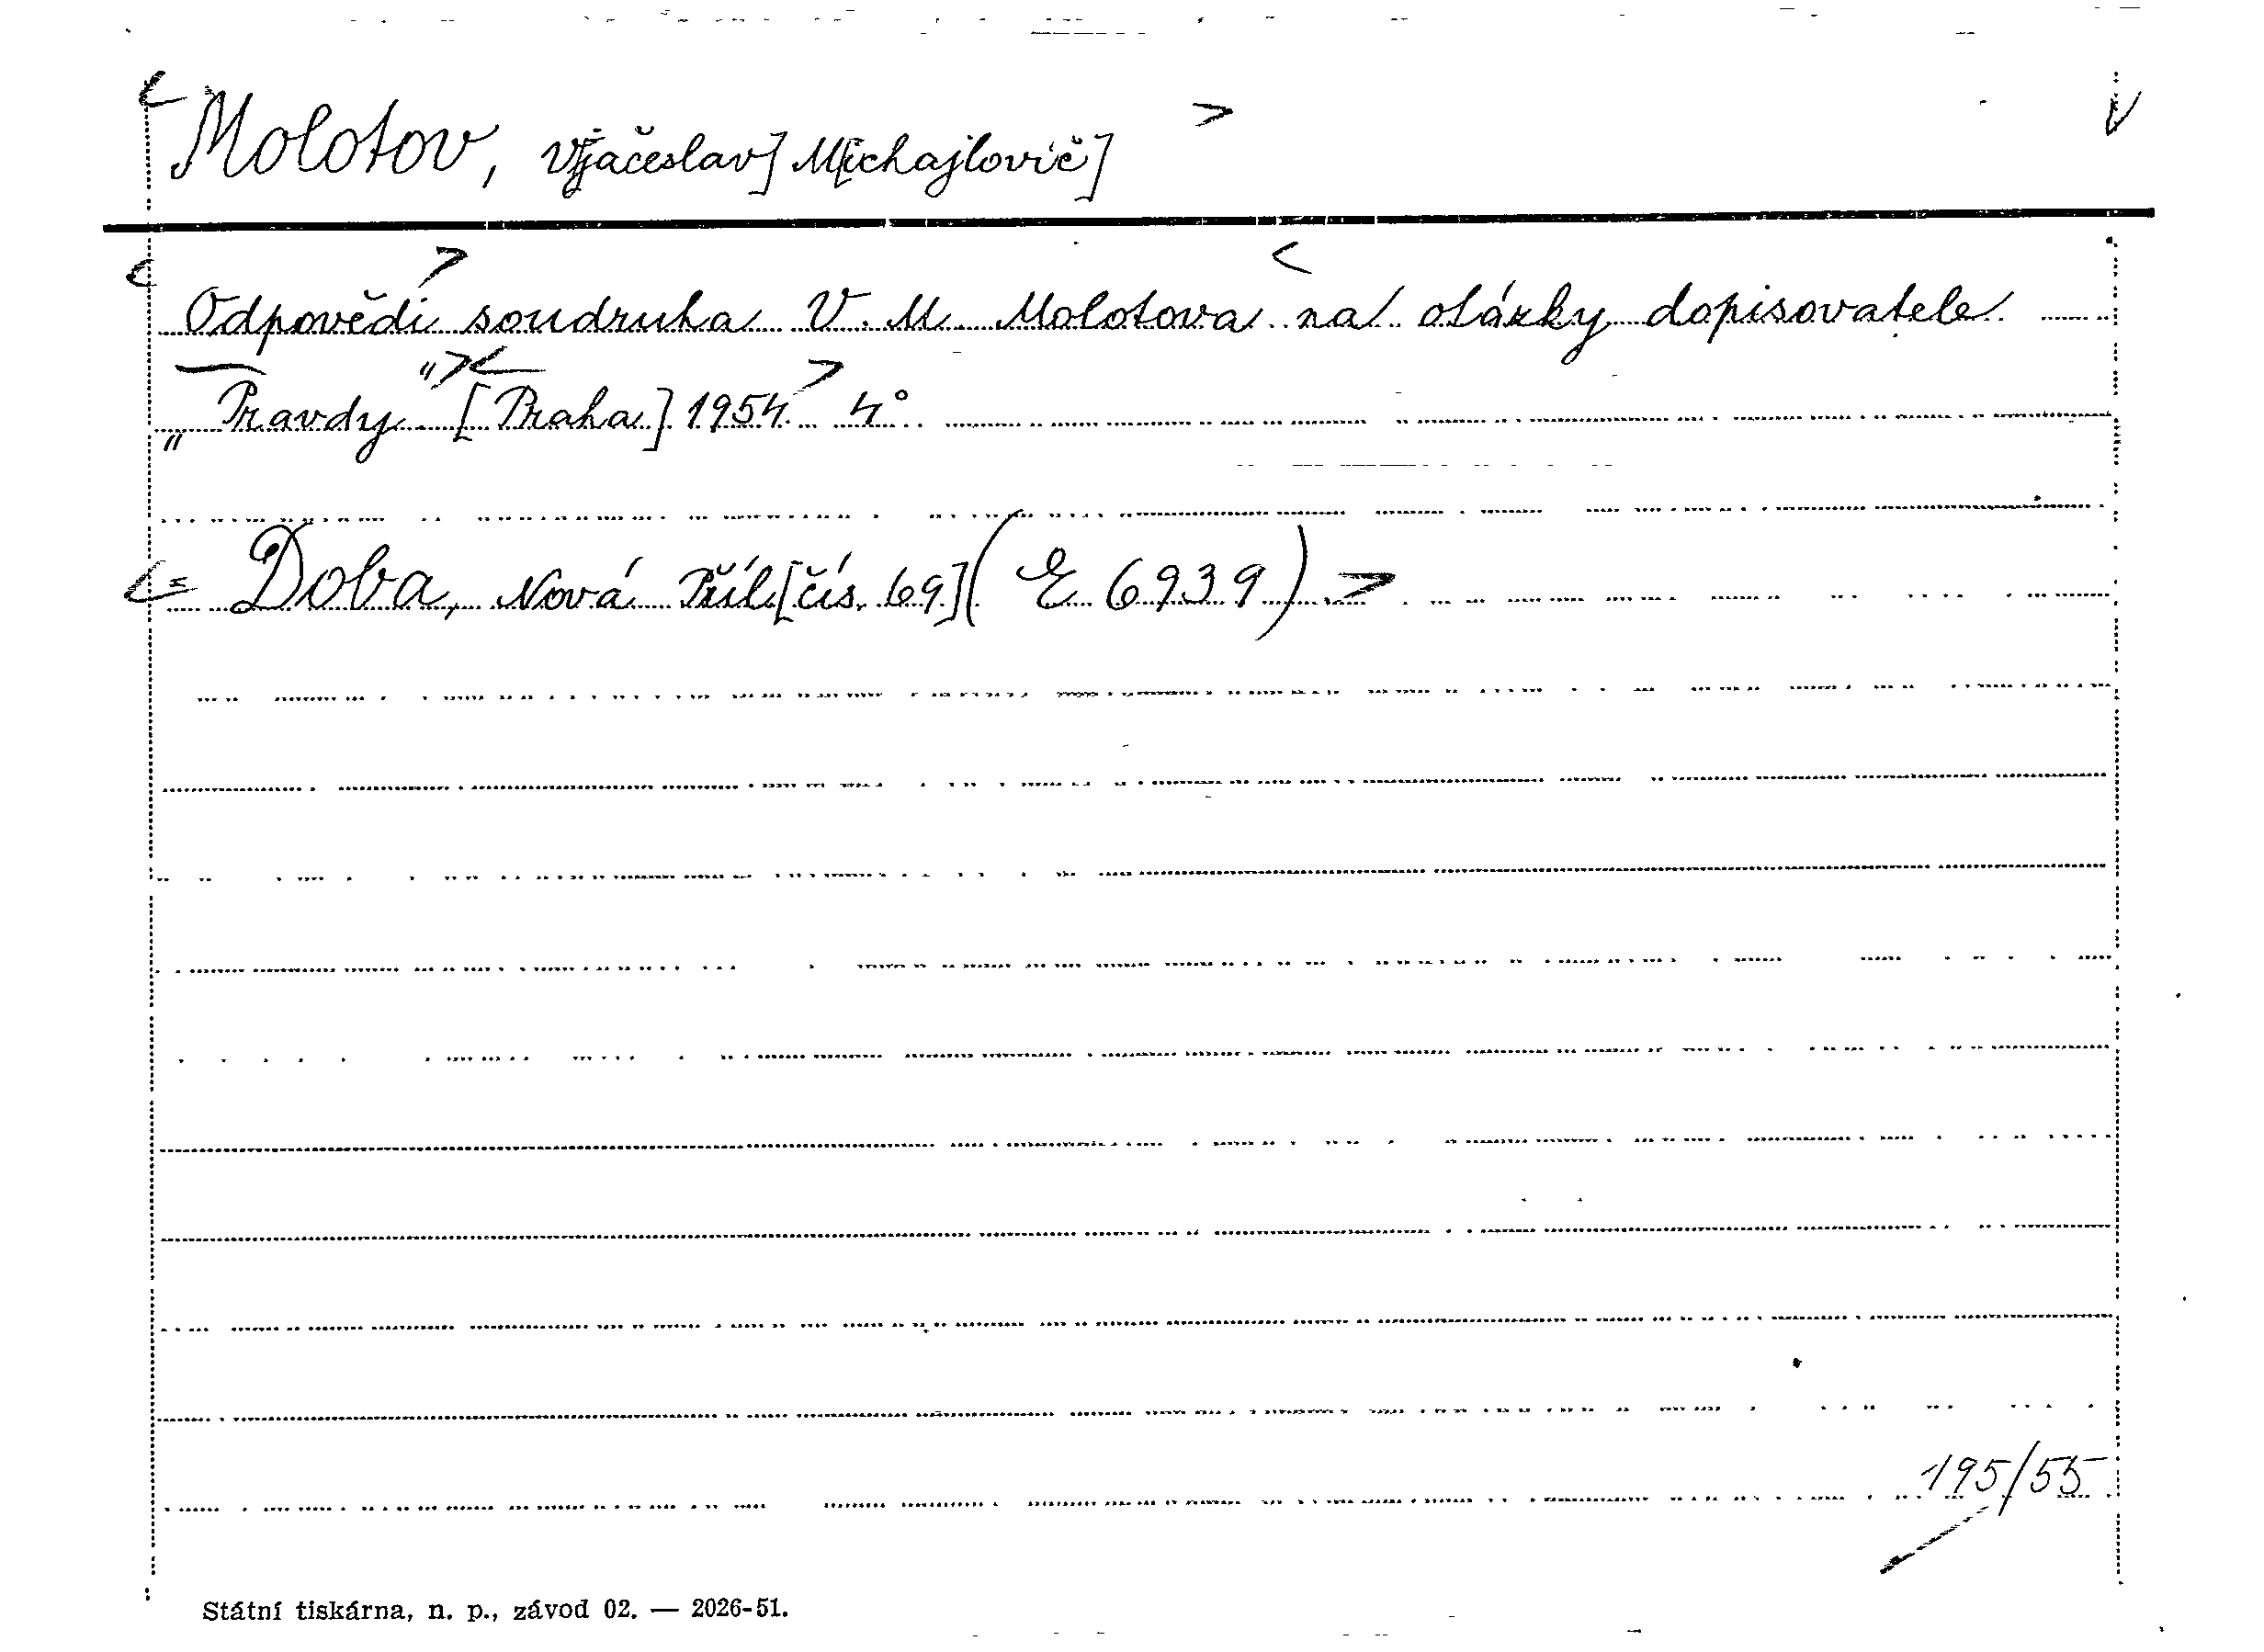 Molotov, V[jačeslav] M[ichajlovič]
Odpovědi soudruha V. M. Molotova na otázky dopisovatele
„Pravdy". [Praha] 1954 4°
= Doba, Nová Příl. [čís. 69] (E 6939)
195/55
Státní tiskárna, n. p., závod 02. — 2026-51.